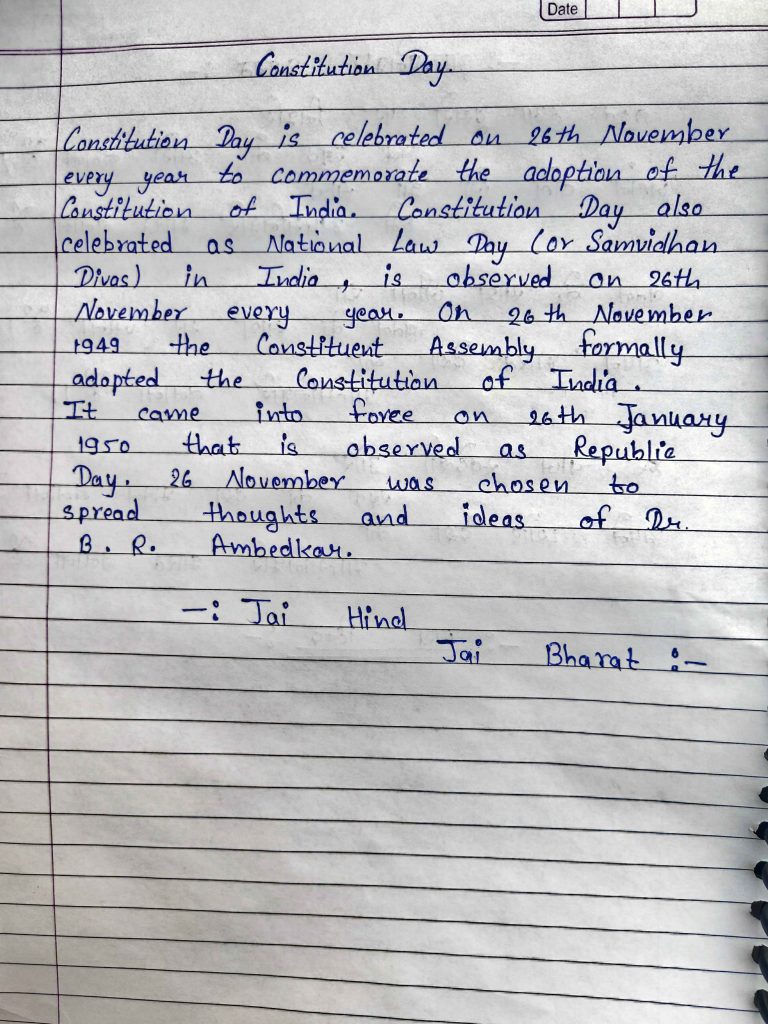 Date
Constitution Day.
Constitution Day is celebrated on 26th November
every year to commemorate the adoption of the
Constitution of India. Constitution Day also
celebrated as National Law Day (or Samvidhan
Divas) in India, is observed on 26th
November every year. On 26th November
1949 the Constituent Assembly formally
adopted the Constitution of India.
It came into force on 26th January
1950 that is observed as Republic
Day. 26 November was chosen to
spread thoughts and ideas of Dr.
B. R. Ambedkar.
-: Jai Hind
Jai Bharat :-